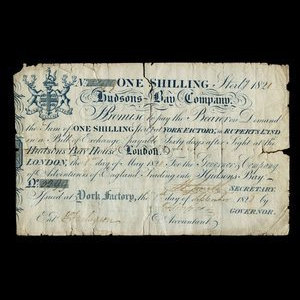 ONE SHILLING Ster.g 1821
Hudsons Bay Company.
I Promise to pay the Bearer on Demand
the Sum of ONE SHILLING YORK FACTORY, in RUPERTS LAND
in a Bill of Exchange payable Sixty days after Sight at the
Hudsons Bay House London.
LONDON, the day of May 182 For the Governor & Company
of Adventurers of England Trading into Hudsons Bay.
No. SECRETARY.
Issued at York Factory, the day of September 182
GOVERNOR.
Ent.d Accountant.